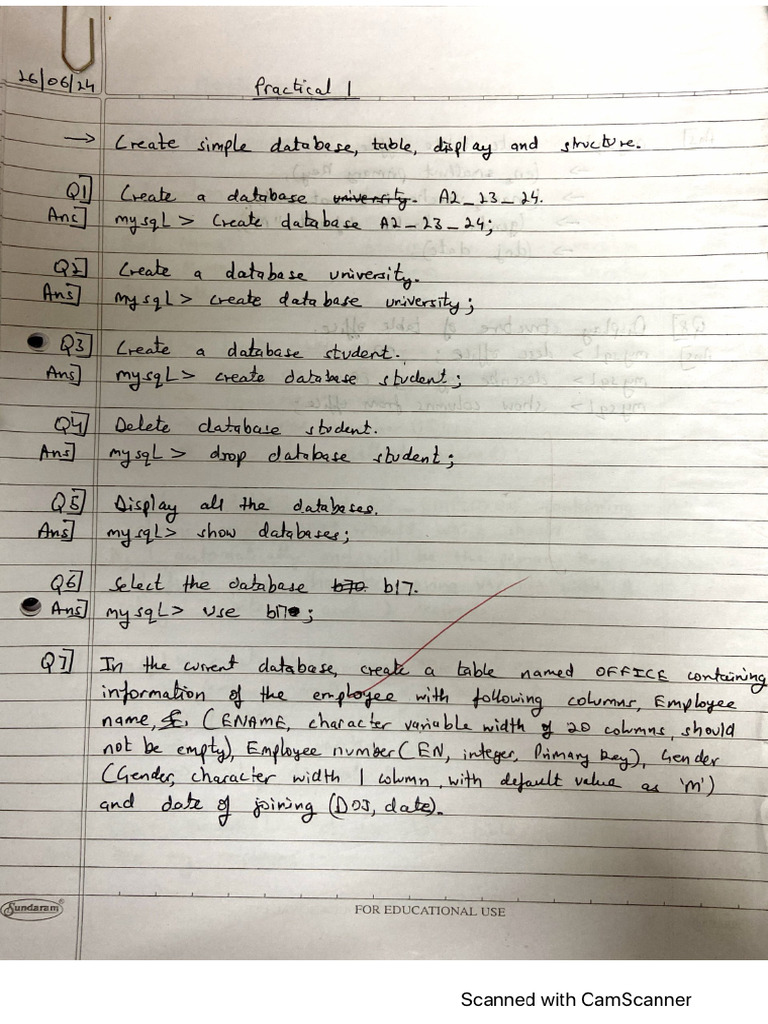 26/06/24
Practical 1
→ Create simple database, table, display and structure.
Q1] Create a database university. A2_23_24.
Ans] mysqL > Create database A2_23_24;
Q2] Create a database university.
Ans] mysqL > create database university;
Q3] Create a database student.
Ans] mysqL > create database student;
Q4] Delete database student.
Ans] mysqL > drop database student;
Q5] Display all the databases.
Ans] mysqL> show databases;
Q6] Select the database b70 b17.
Ans] mysqL> use b17;
Q7] In the current database, create a table named OFFICE containing
information of the employee with following columns, Employee
name, (ENAME, character variable width of 20 columns, should
not be empty), Employee number (EN, integer, Primary key), Gender
(Gender, character width 1 column, with default value as 'M')
and date of joining (DOJ, date).
Sundaram
FOR EDUCATIONAL USE
Scanned with CamScanner